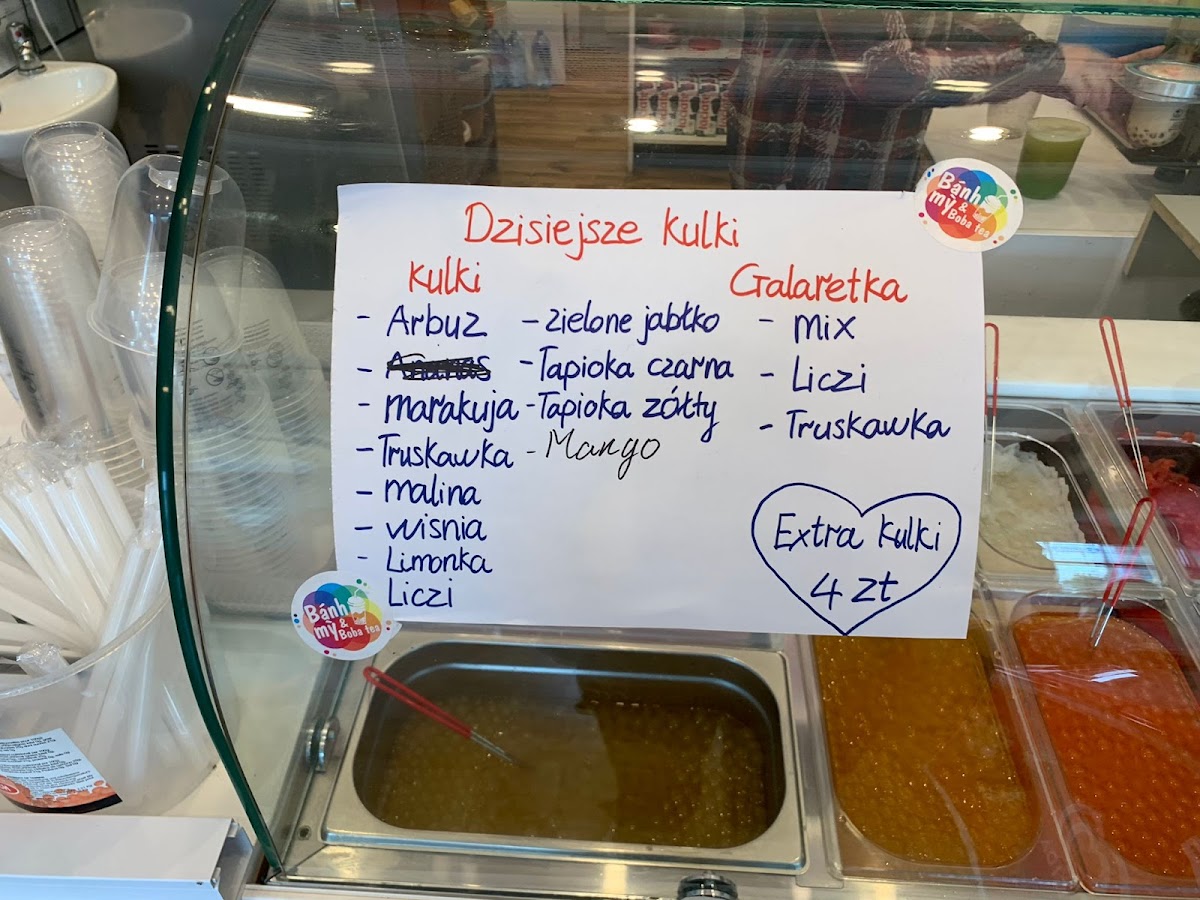 Dzisiejsze Kulki
Kulki
- Arbuz
- Ananas
- Marakuja
- Truskawka
- Malina
- Wiśnia
- Limonka
Liczi
- Zielone jabłko
- Tapioka czarna
- Tapioka żółty
- Mango
Galaretka
- Mix
- Liczi
- Truskawka
Extra Kulki
4 zł
Bánh
mỳ &
Boba tea
Bánh
mỳ &
Boba tea